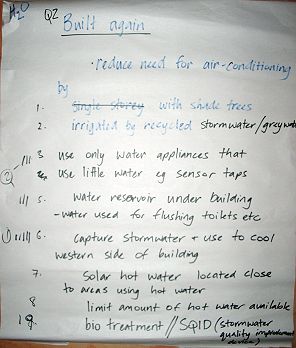 H2O
Q2 Built again
• reduce need for air-conditioning
by
1. single storey with shade trees
2. irrigated by recycled stormwater/greywater
2 /// 3 use only water appliances that
use little water eg sensor taps
/// 5. water reservoir under building
- water used for flushing toilets etc
1 //// 6. capture stormwater + use to cool
western side of building
7. solar hot water located close
to areas using hot water
8 limit amount of hot water available
9. bio treatment // SQID (stormwater
quality improvement
device)